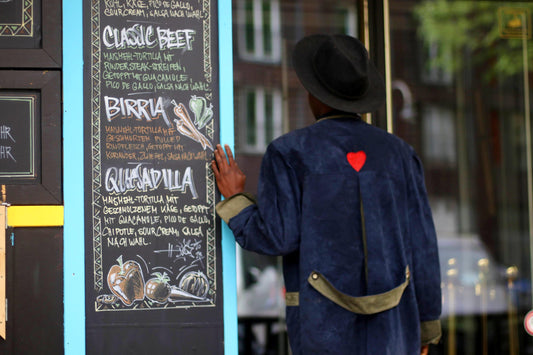 KOHL, KÄSE, PICO DE GALLO,
SOURCREAM, SALSA NACH WAHL.
CLASSIC BEEF
MAISMEHL-TORTILLA MIT
RINDERSTEAK-STREIFEN,
GETOPPT MIT GUACAMOLE,
PICO DE GALLO, SALSA NACH WAHL.
BIRRIA
MAISMEHL-TORTILLA MIT
GESCHMORTEM PULLED
RINDFLEISCH, GETOPPT MIT
KORIANDER, ZWIEBEL, SALSA NACH WAHL.
QUESADILLA
MAISMEHL-TORTILLA MIT
GESCHMOLZENEM KÄSE, GETOPPT
MIT GUACAMOLE, PICO DE GALLO,
CHIPOTLE, SOURCREAM, SALSA
NACH WAHL.
HR
HR